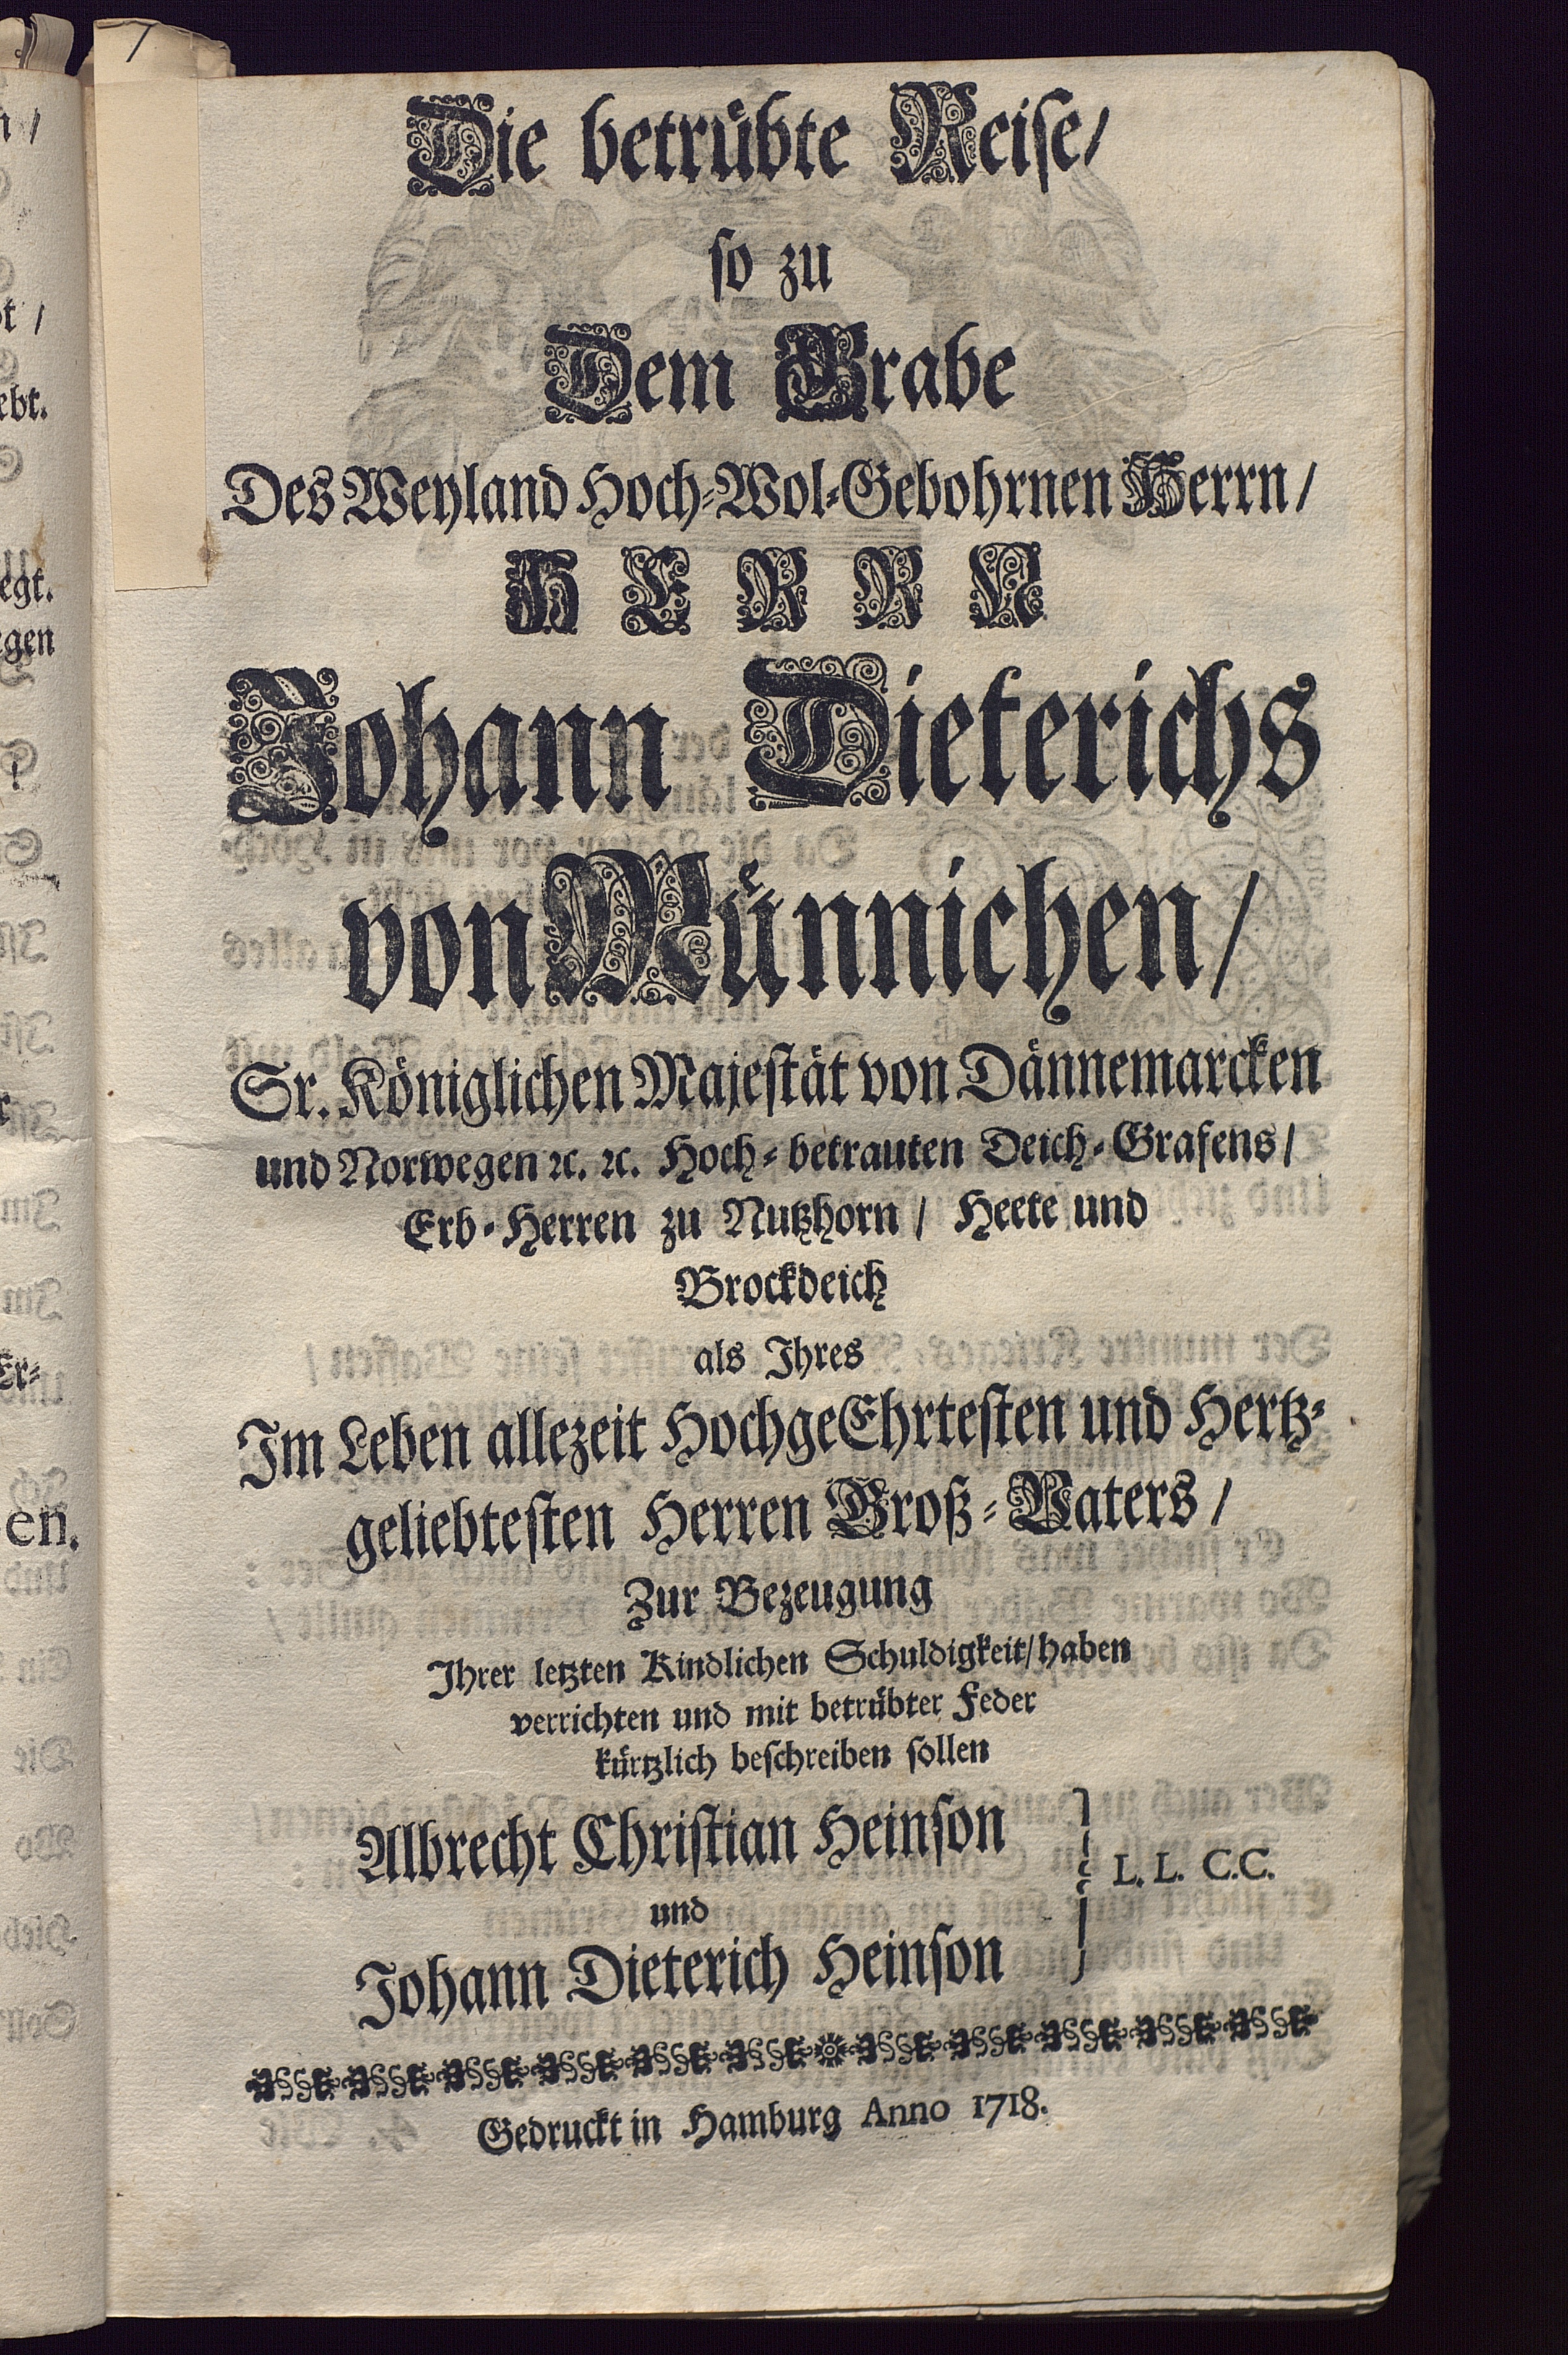 Die betrübte Reise/
so zu
Dem Grabe
Des Weyland Hoch-Wol-Gebohrnen Herrn/
HERRN
Johann Dieterichs
von Münnichen/
Sr. Königlichen Majestät von Dännemarcken
und Norwegen ꝛc. ꝛc. Hoch-betrauten Deich-Grafens/
Erb-Herren zu Nutzhorn / Heete und
Brockdeich
als Ihres
Im Leben allezeit HochgeEhrtesten und Hertz-
geliebtesten Herren Groß-Vaters /
Zur Bezeugung
Ihrer letzten Kindlichen Schuldigkeit/haben
verrichten und mit betrübter Feder
kürtzlich beschreiben sollen
Albrecht Christian Heinson
und
L. L. C.C.
Johann Dieterich Heinson
Gedruckt in Hamburg Anno 1718.